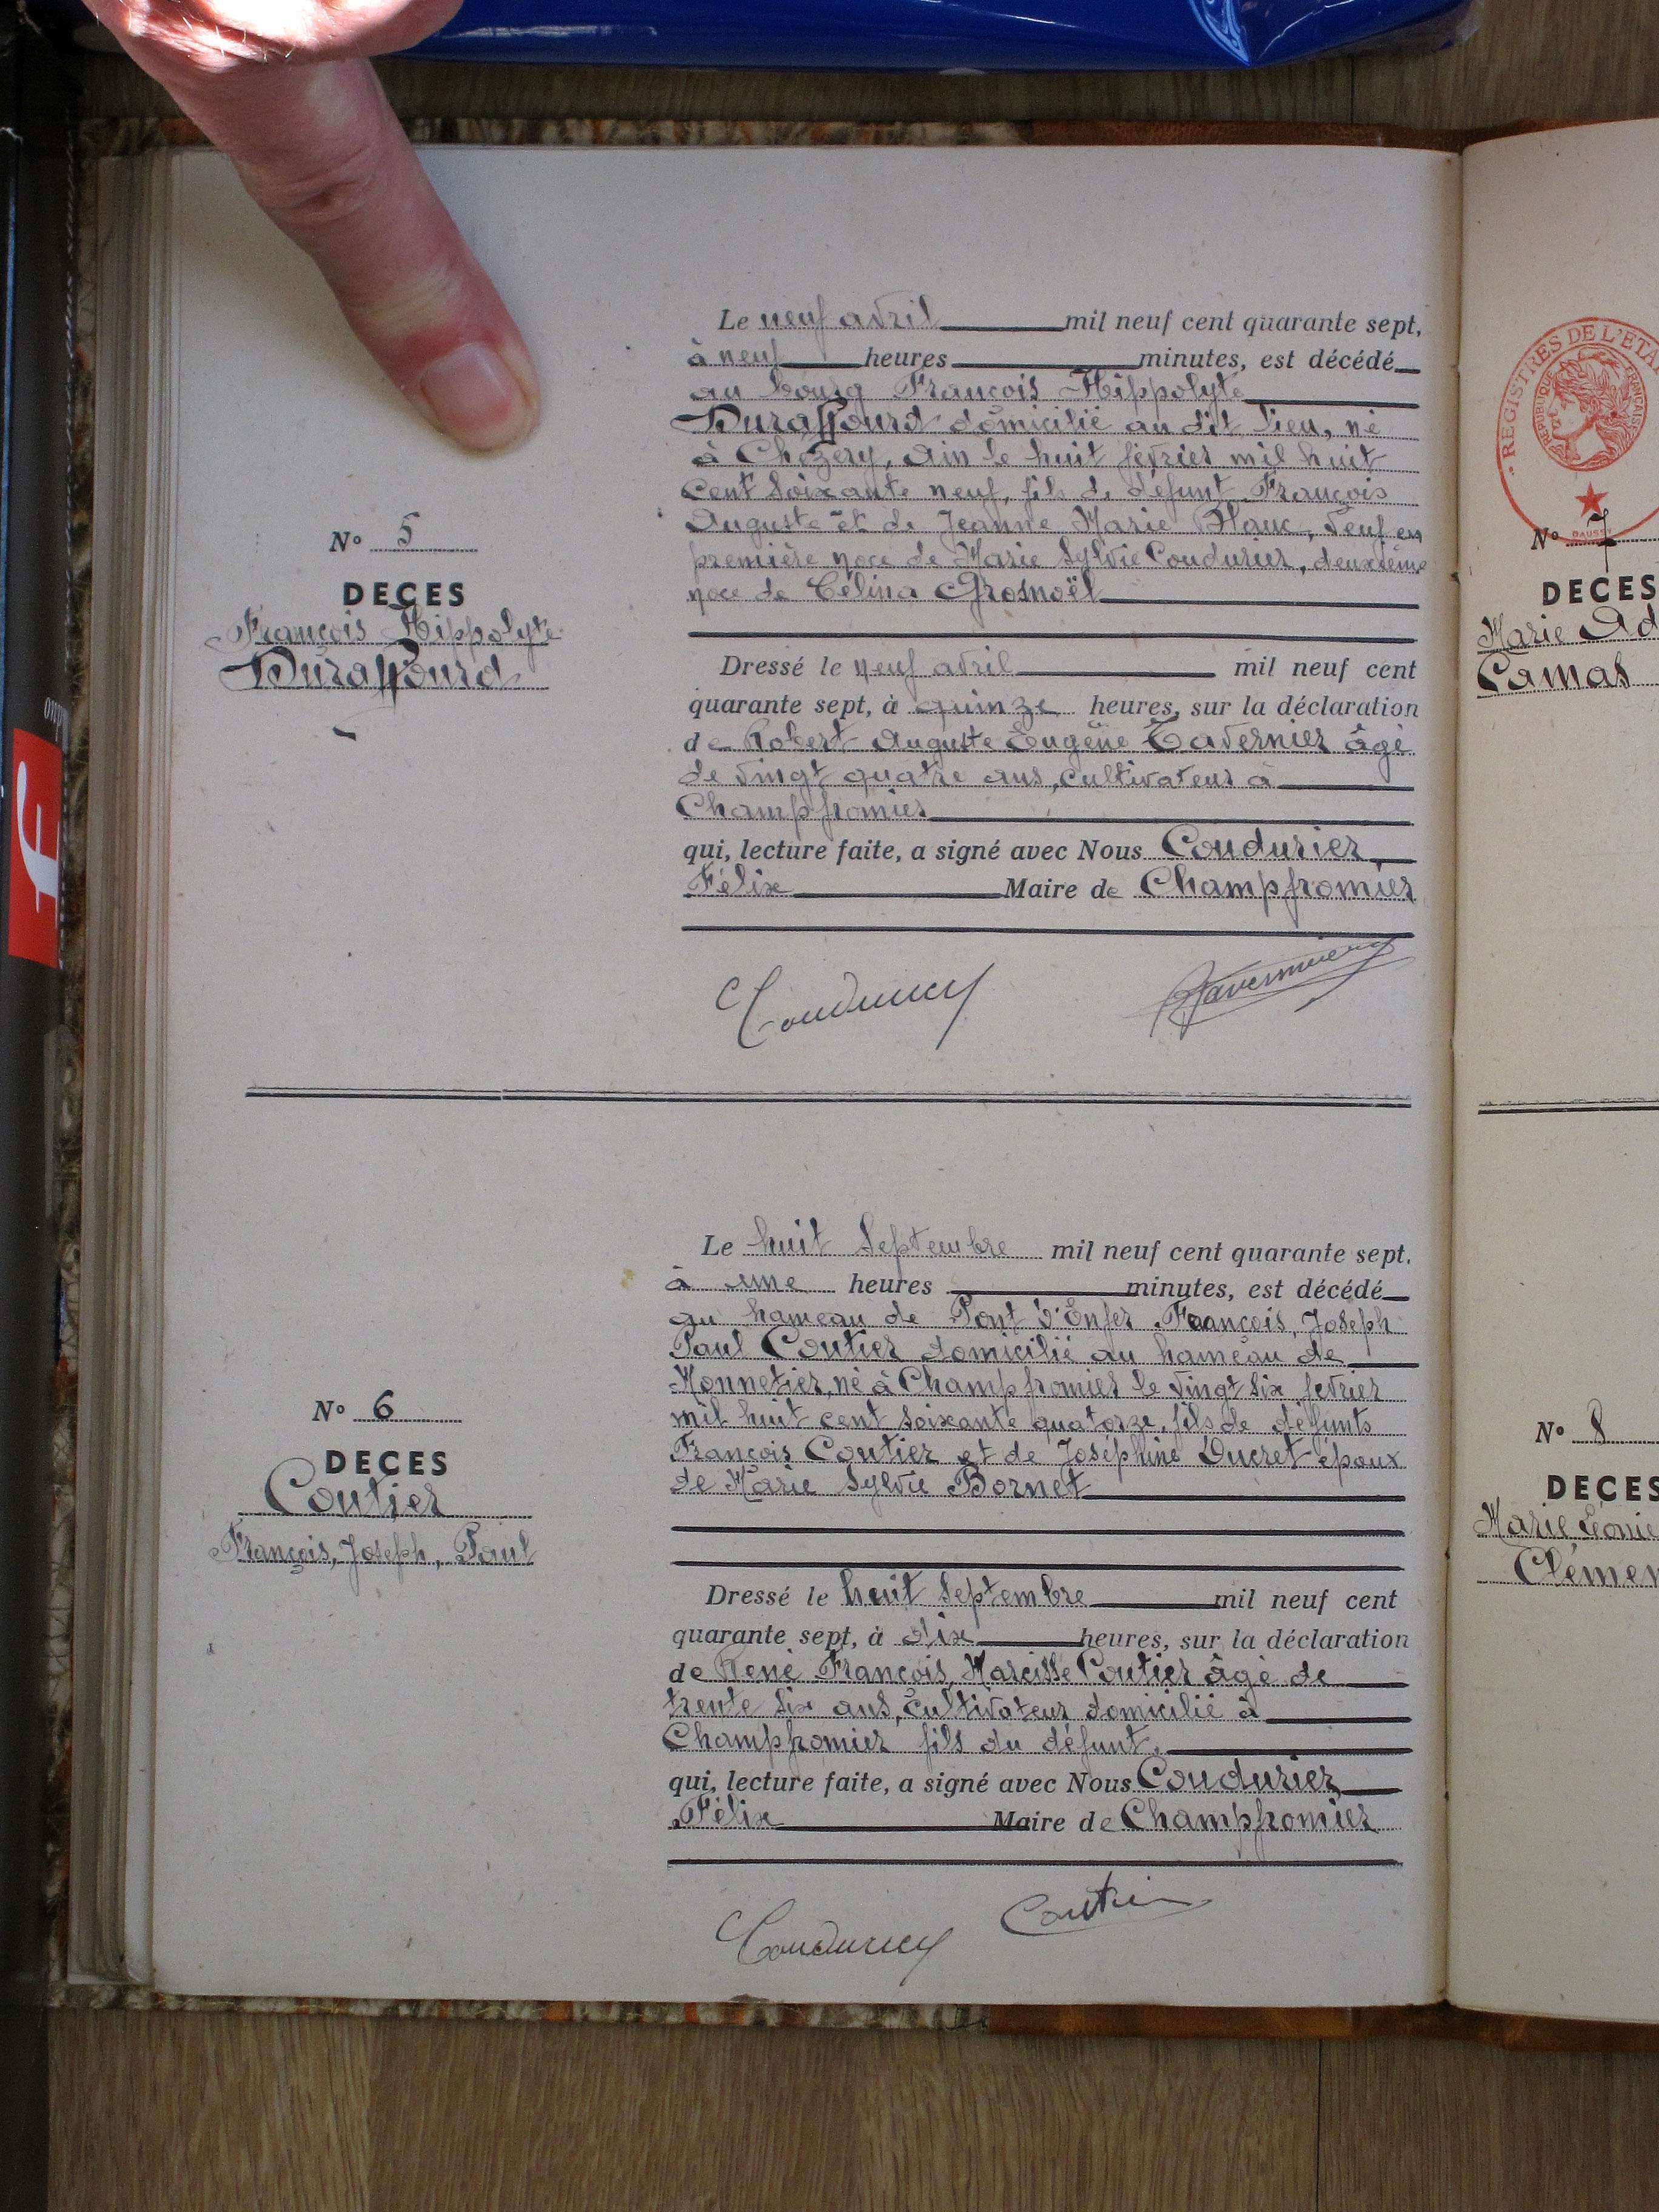 Le neuf avril mil neuf cent quarante sept,
à neuf heures minutes, est décédé
au bourg François Hippolyte
Duraffourd domicilié au dit lieu, né
à Chézery, Ain le huit février mil huit
cent soixante neuf, fils de défunt François
Auguste et de Jeanne Marie Blanc, veuf en
première noce de Marie Sylvie Coudurier, deuxième
noce de Célina Grosnoël
N° 5
DECES
François Hippolyte
Duraffourd
Dressé le neuf avril mil neuf cent
quarante sept, à quinze heures, sur la déclaration
de Robert Auguste Eugène Tavernier âgé
de vingt quatre ans, cultivateur à
Champfromier
qui, lecture faite, a signé avec Nous Coudurier
Félix Maire de Champfromier
Coudurier Tavernier
Le huit Septembre mil neuf cent quarante sept.
à une heures minutes, est décédé
au hameau de Pont d'Enfer François, Joseph
Paul Coutier domicilié au hameau de
Monnetier, né à Champfromier le vingt six fevrier
mil huit cent soixante quatorze, fils de défunts
François Coutier et de Joséphine Ducret époux
de Marie Sylvie Bornet
N° 6
DECES
Coutier
François, Joseph, Paul
Dressé le huit Septembre mil neuf cent
quarante sept, à dix heures, sur la déclaration
de René François, Narcisse Coutier âgé de
trente six ans, cultivateur domicilié à
Champfromier fils du défunt.
qui, lecture faite, a signé avec Nous Coudurier
Félix Maire de Champfromier
Coudurier Coutier
REGISTRES DE L'ÉTA
RÉPUBLIQUE FRANÇAISE
N° 7
DECES
Marie Ad
Camas
N° 8
DECES
Marie Léonie
Clémen
f